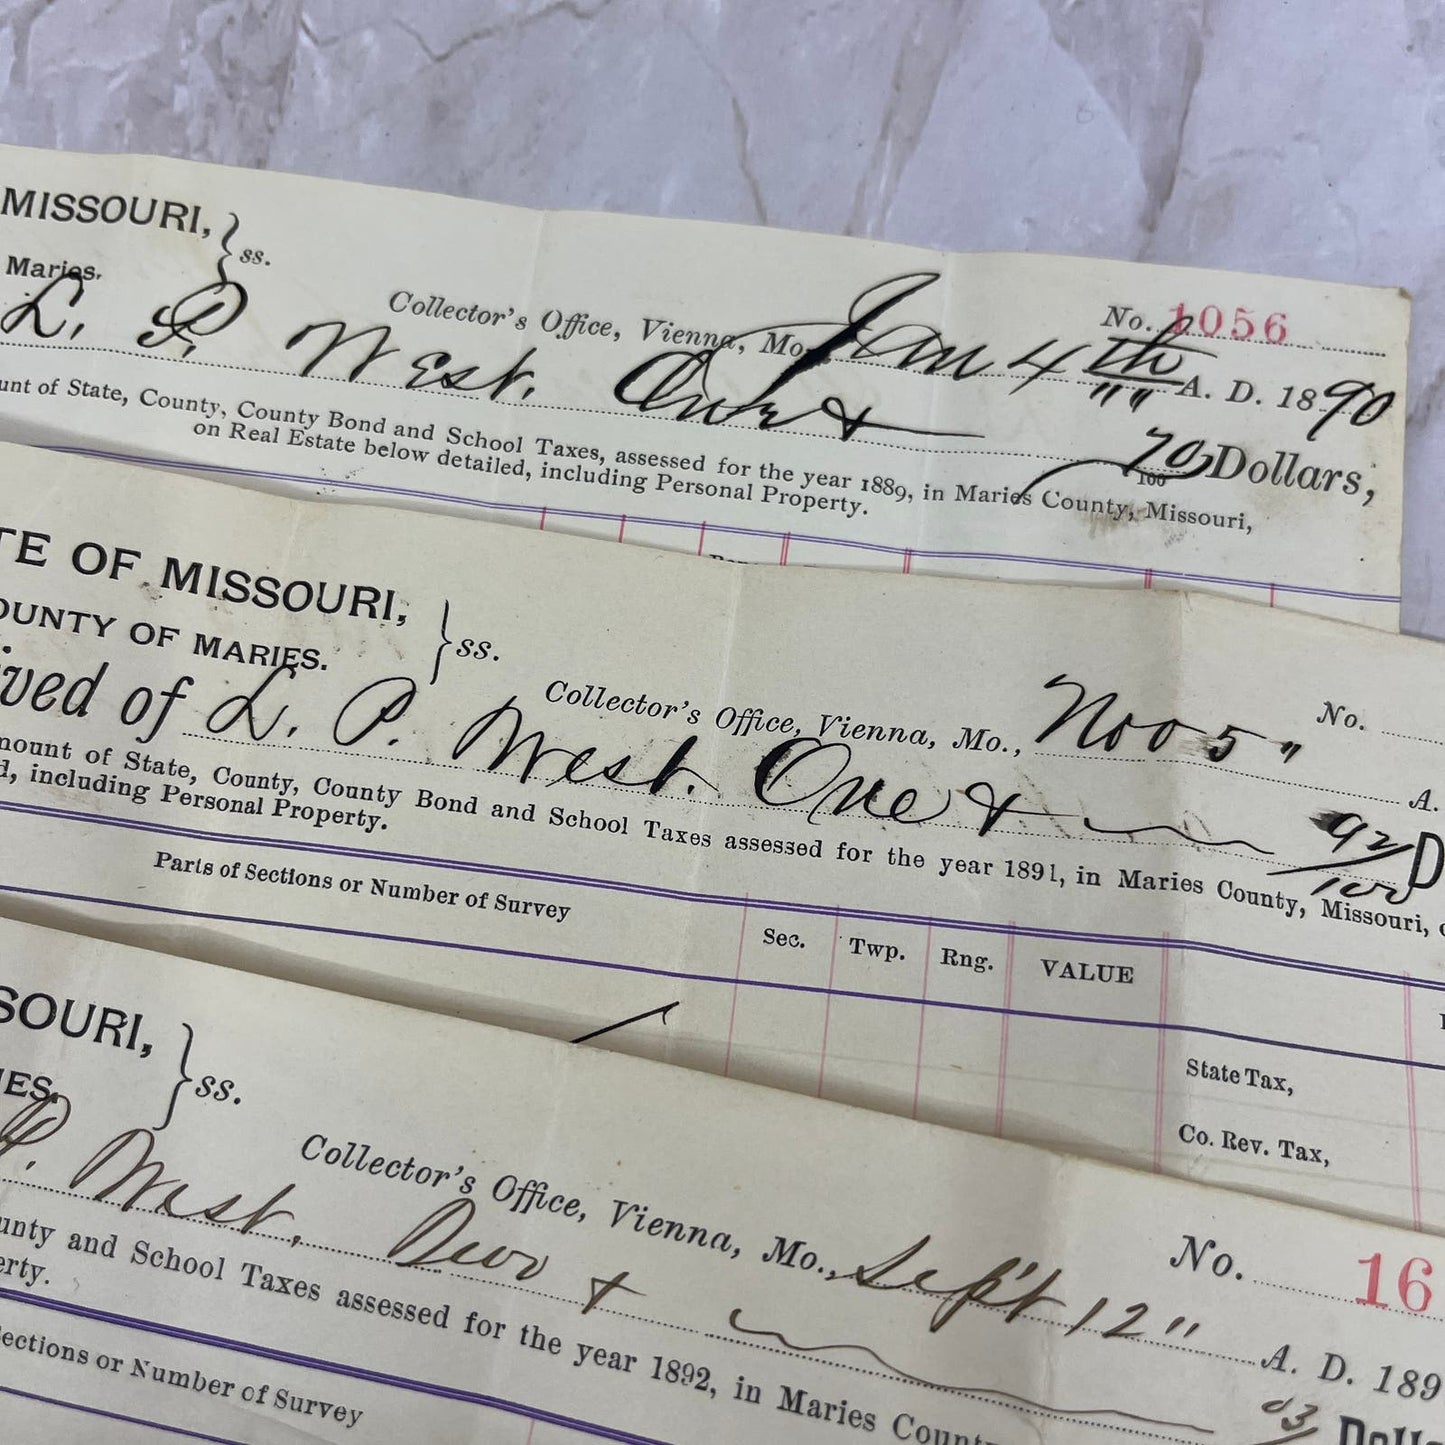 MISSOURI, } ss.
Maries.
No. 1056
Collector's Office, Vienna, Mo., Jan 4th A. D. 1890
L. P. West.
70/100 Dollars,
unt of State, County, County Bond and School Taxes, assessed for the year 1889, in Maries County, Missouri,
on Real Estate below detailed, including Personal Property.
TE OF MISSOURI, } ss.
OUNTY OF MARIES.
No.
Collector's Office, Vienna, Mo., Nov 5" A.
ived of L. P. West. One & 92/100 D
mount of State, County, County Bond and School Taxes assessed for the year 1891, in Maries County, Missouri, o
d, including Personal Property.
Parts of Sections or Number of Survey Sec. Twp. Rng. VALUE
State Tax,
Co. Rev. Tax,
SOURI, } ss.
IES.
No. 16
Collector's Office, Vienna, Mo., Sep't 12" A. D. 189
P. West. Two & 03/ Dolla
unty and School Taxes assessed for the year 1892, in Maries Count
erty.
ections or Number of Survey